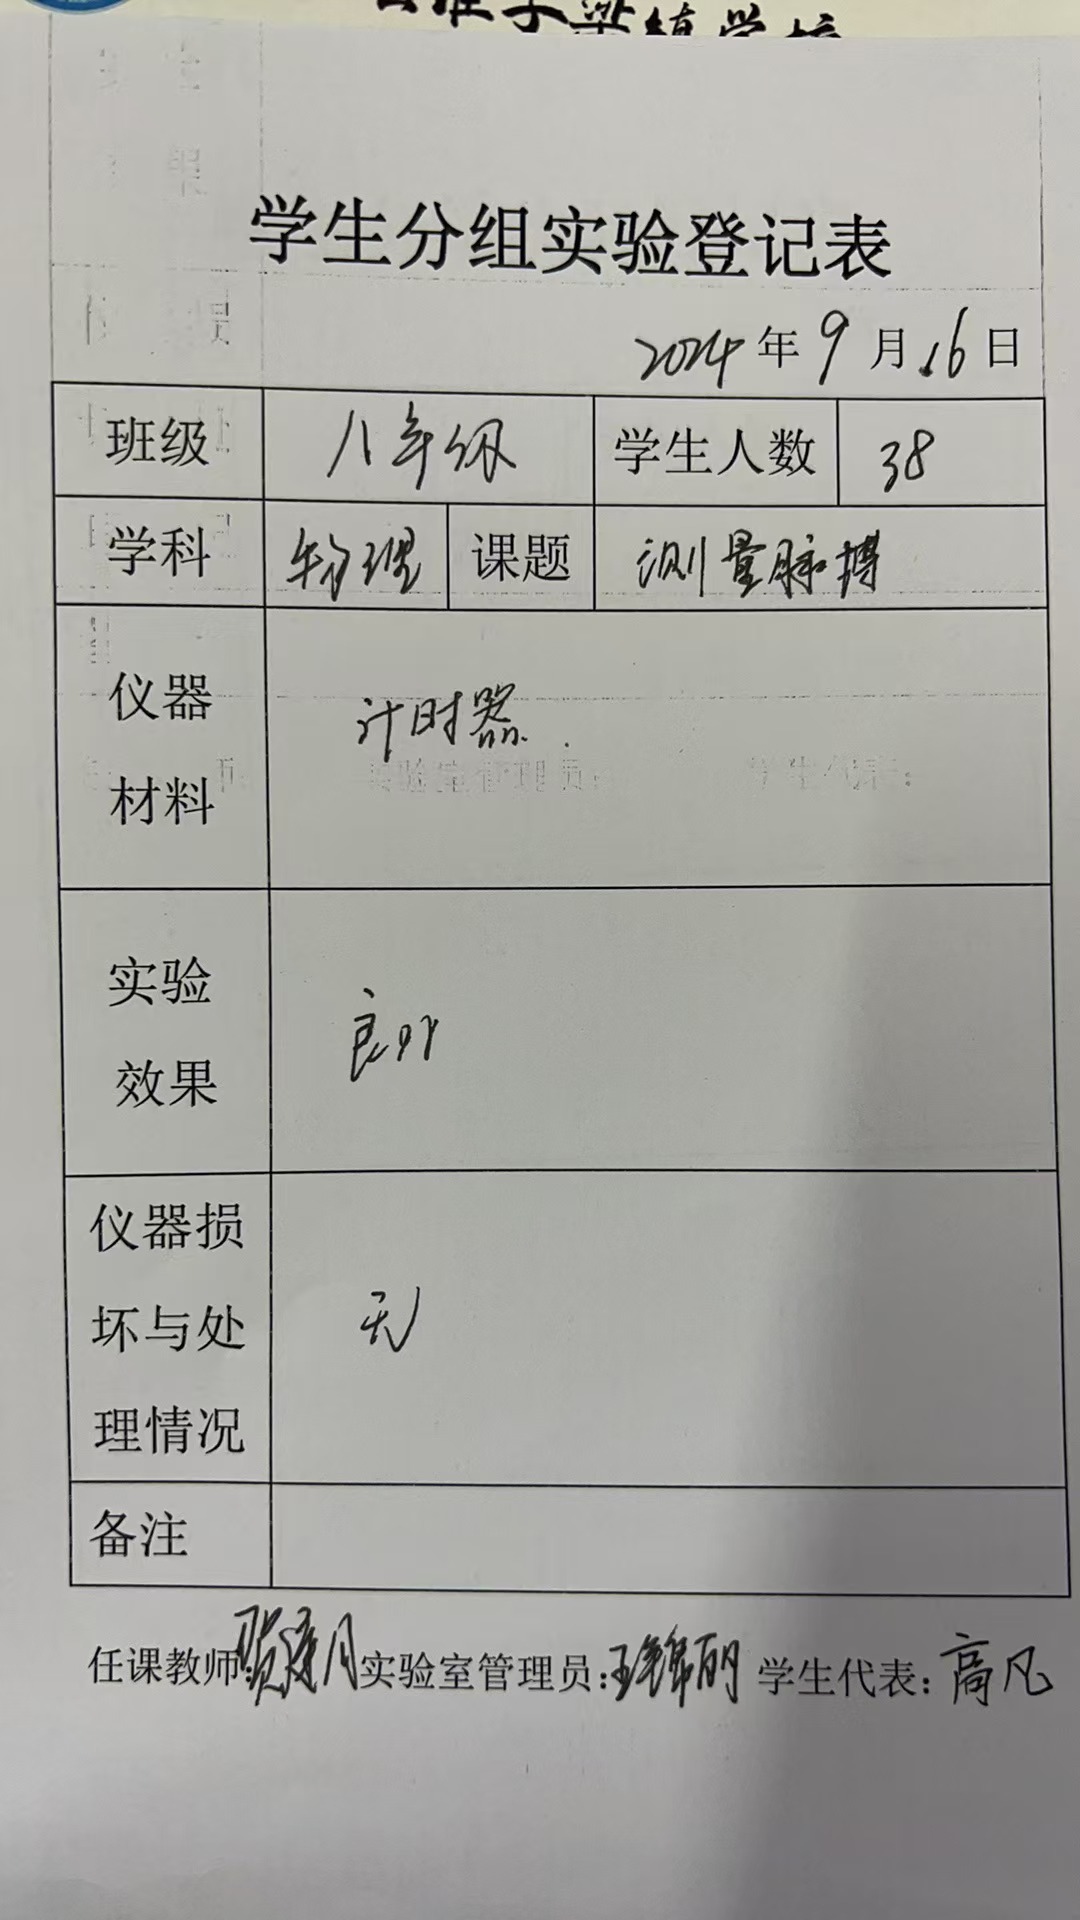 学生分组实验登记表
2024年9月16日
班级 八年级 学生人数 38
学科 物理 课题 测量脉搏
仪器材料 计时器
实验效果 良好
仪器损坏与处理情况 无
备注
任课教师: 实验室管理员:王锦丽 学生代表:高凡